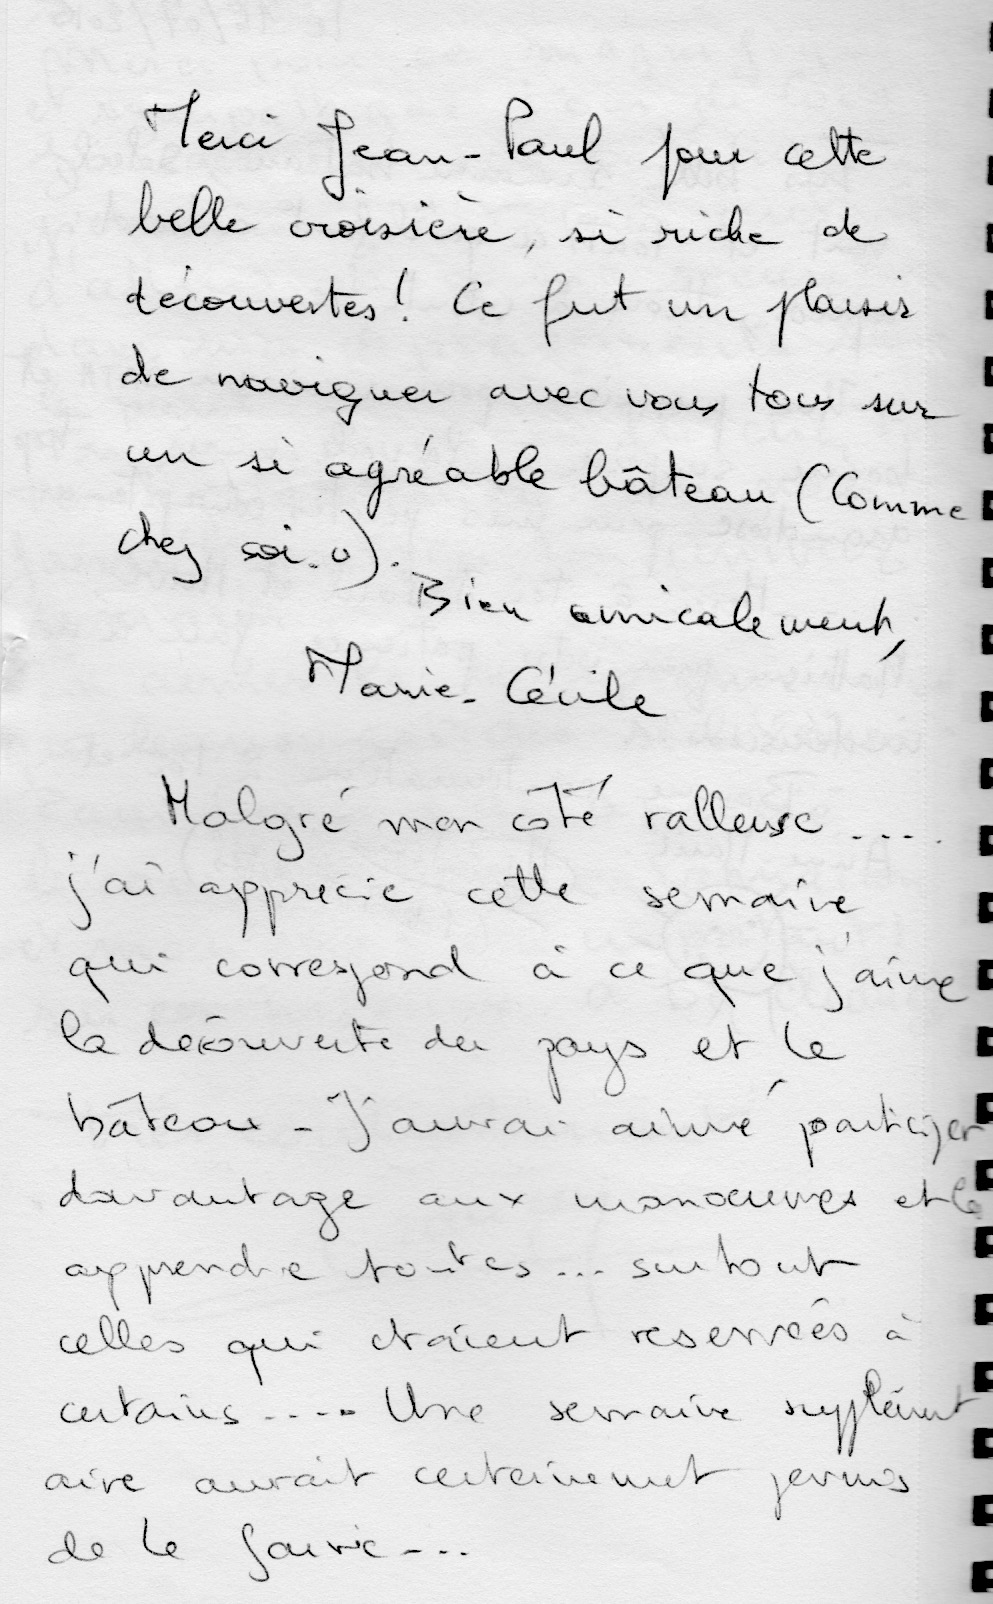 Merci Jean-Paul pour cette
belle croisière, si riche de
découvertes! Ce fut un plaisir
de naviguer avec vous tous sur
un si agréable bâteau (Comme
chez soi..).
Bien amicalement,
Marie-Cécile
Malgré mon côté ralleuse ....
j'ai apprécié cette semaine
qui correspond à ce que j'aime
la découverte du pays et le
bâteau - J'aurai aimé participer
davantage aux manoeuvres et les
apprendre toutes... surtout
celles qui étaient reservées à
certains .... Une semaine supplément
aire aurait certainement permis
de le faire ---